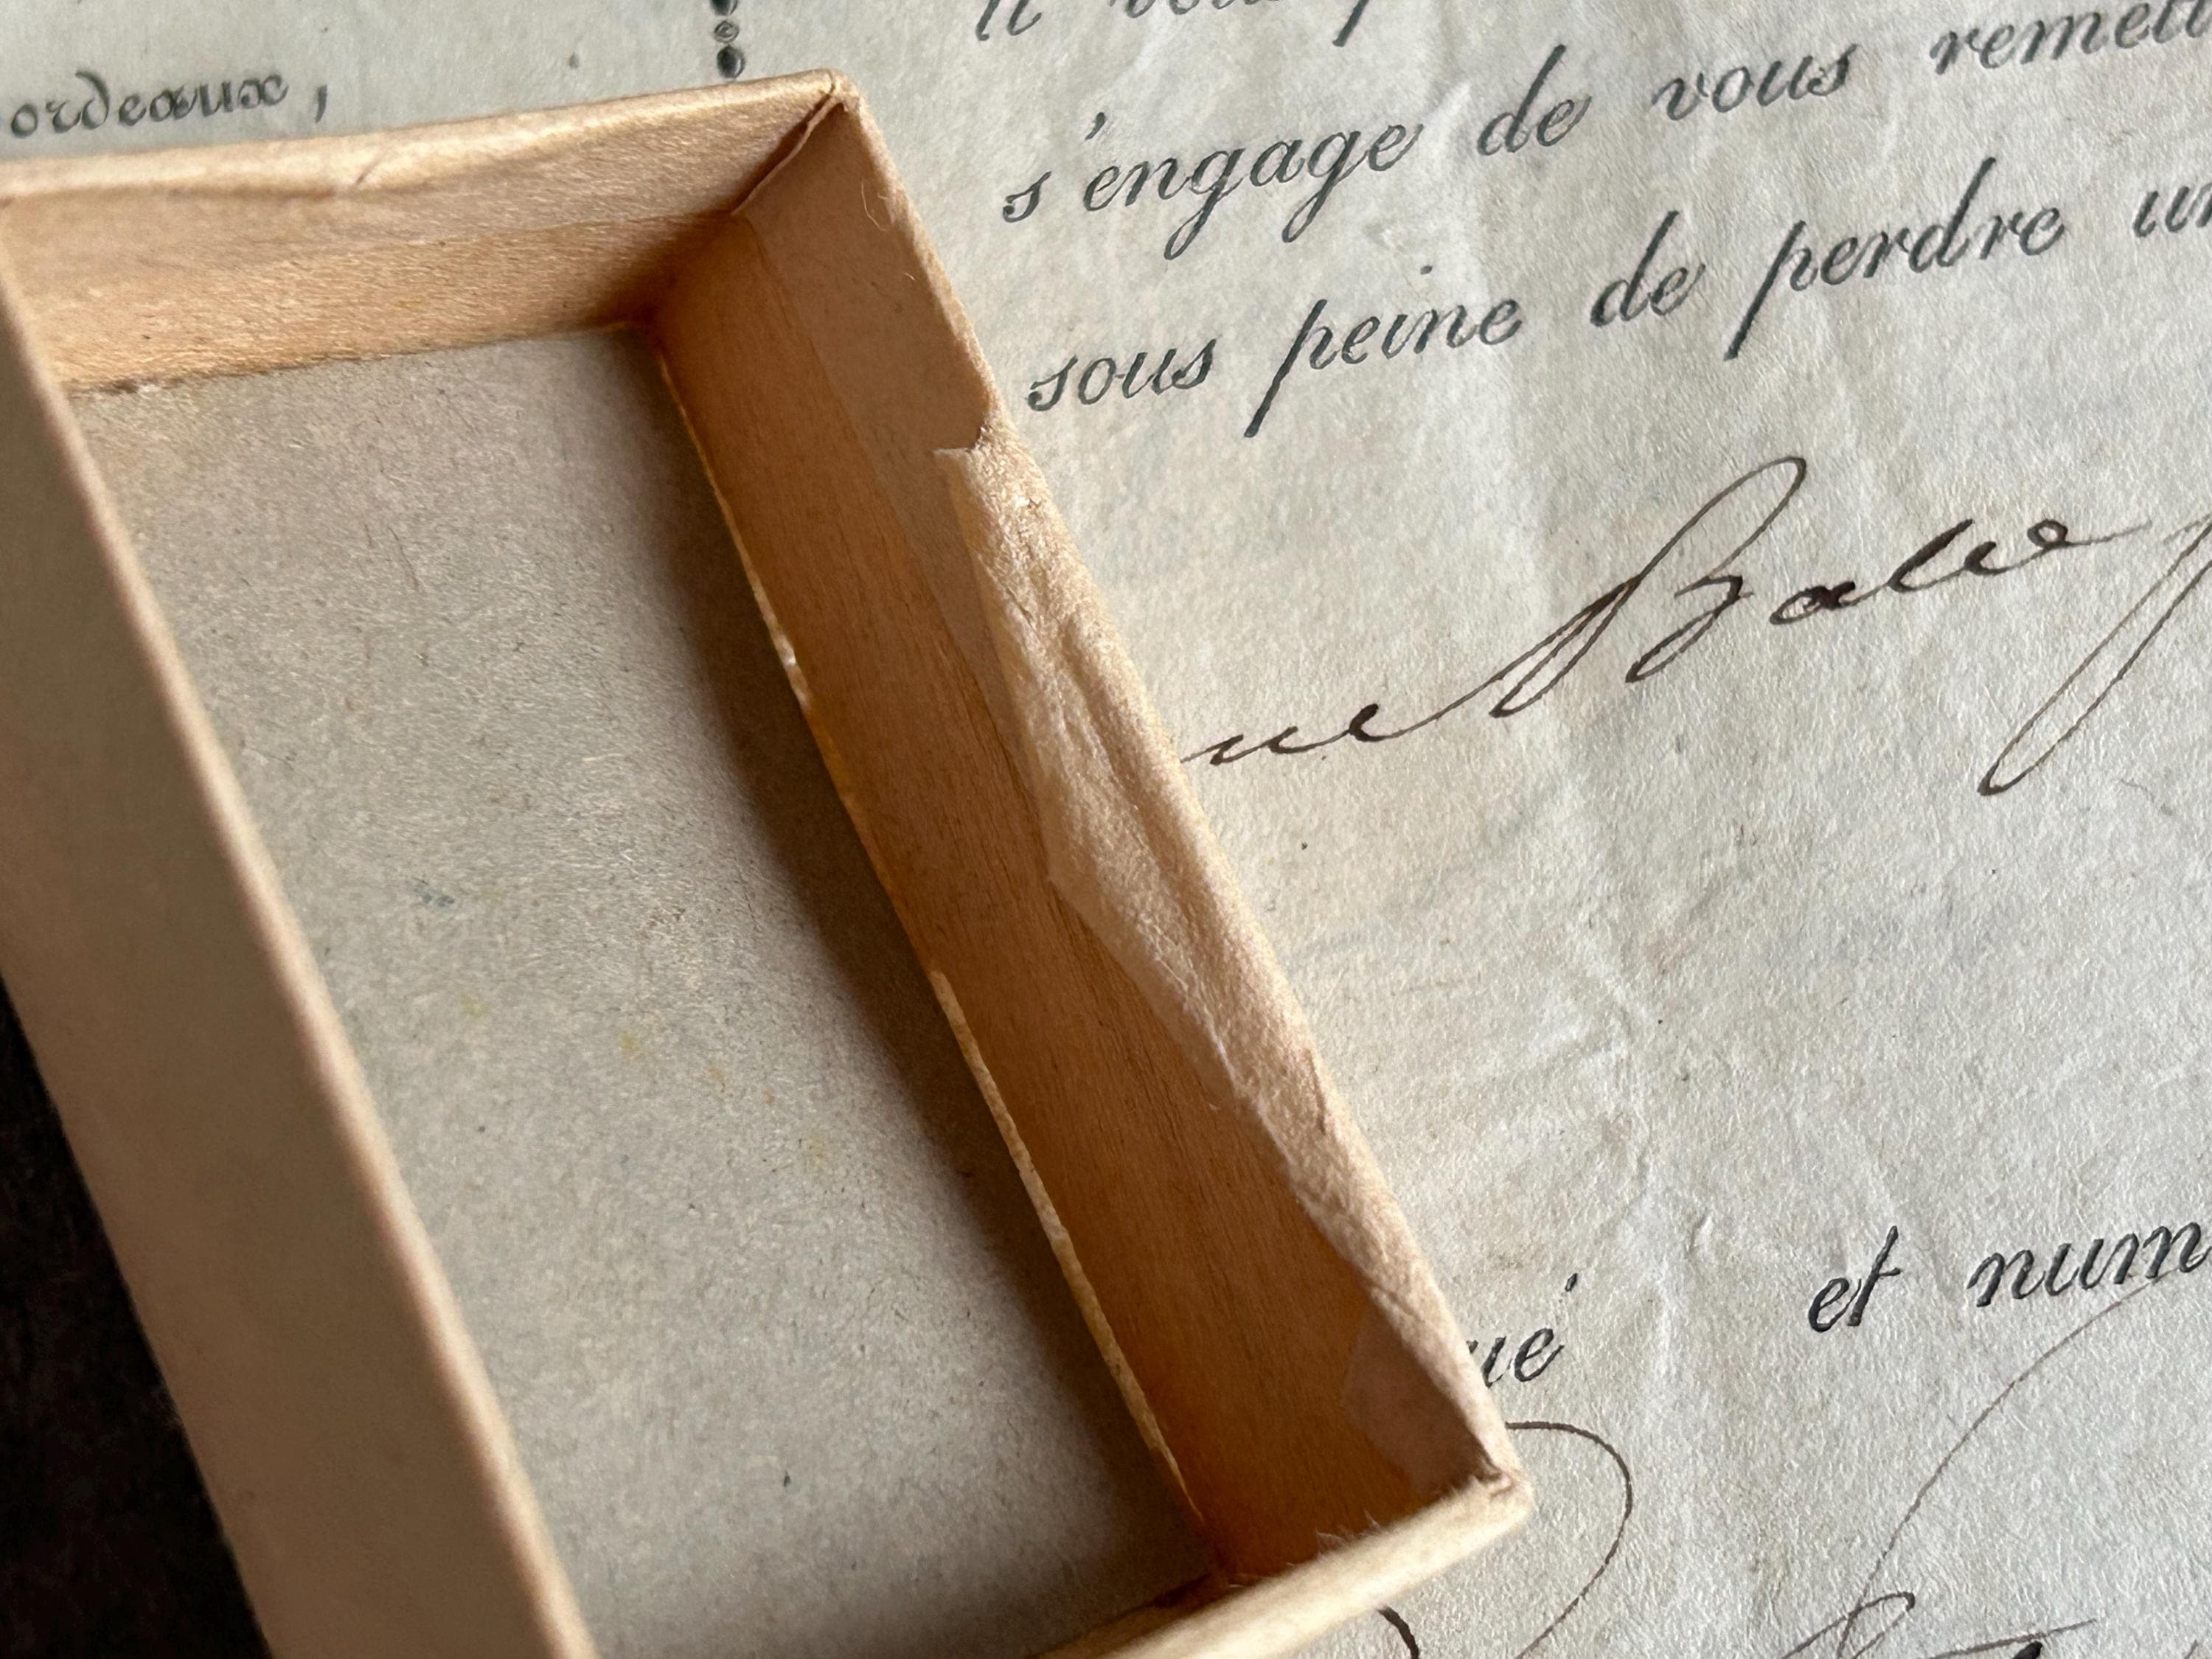 ordeaux,
s'engage de vous remett
sous peine de perdre un
ne Balle
ué et num